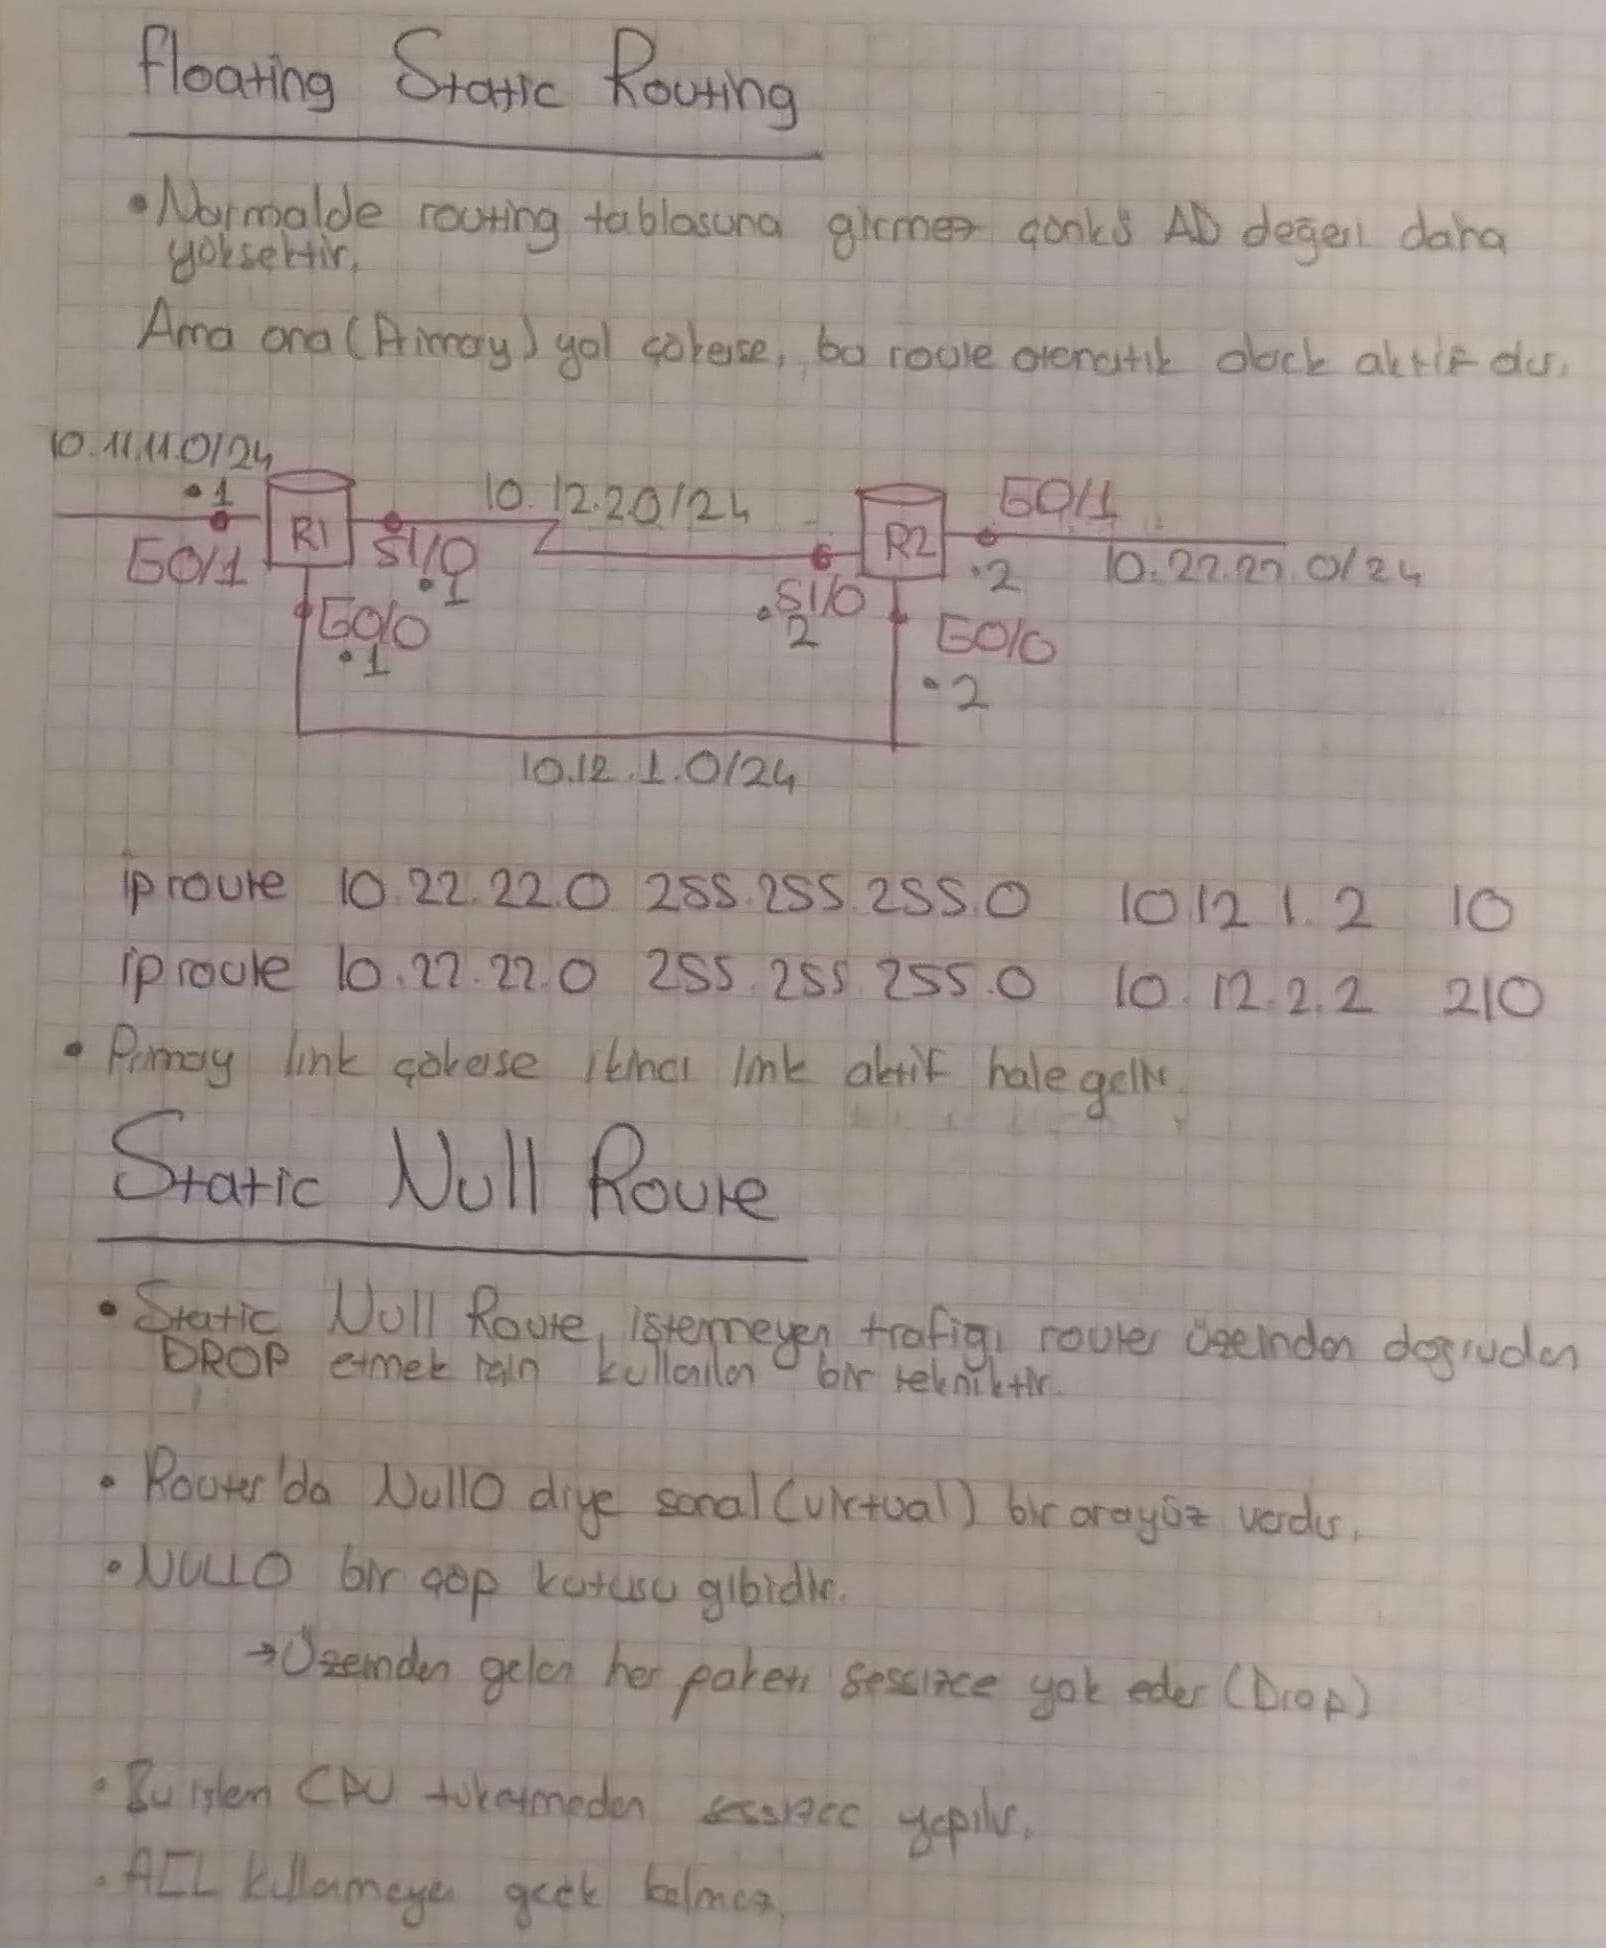 Floating Static Routing
• Normalde routing tablosuna girmez çünkü AD değeri daha
yüksektir.
Ama ana (Primary) yol çökerse, bu route otomatik olarak aktif olur.
10.11.11.0/24
.1
G0/1
R1
S1/0
.1
G0/0
.1
10.12.2.0/24
R2
S1/0
.2
G0/1
.2
10.22.22.0/24
G0/0
.2
10.12.1.0/24
ip route 10.22.22.0 255.255.255.0 10.12.1.2 10
ip route 10.22.22.0 255.255.255.0 10.12.2.2 210
• Primary link çökerse ikinci link aktif hale gelir.
Static Null Route
• Static Null Route, istemeyen trafiği router üzerinden doğrudan
DROP etmek için kullanılan bir tekniktir.
• Router'da Null0 diye sanal (virtual) bir arayüz vardır.
• NULL0 bir çöp kutusu gibidir.
→ Üzerinden gelen her paketi sessizce yok eder (Drop)
• Bu işlem CPU tüketmeden sessizce yapılır.
• ACL kullanmaya gerek kalmaz.